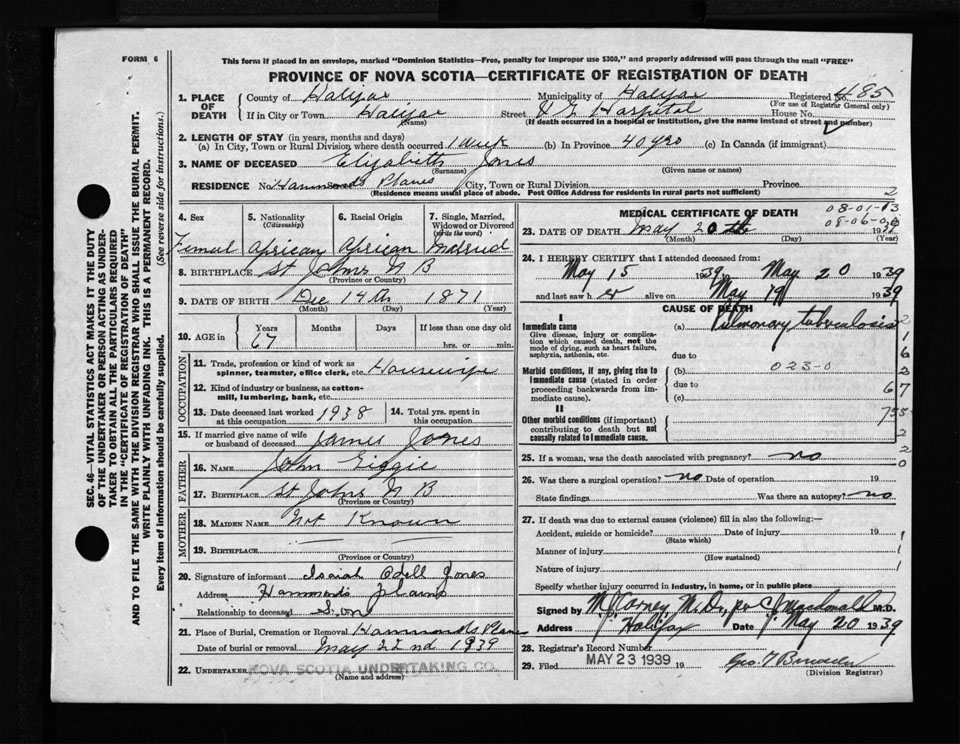 FORM 6
This form if placed in an envelope, marked "Dominion Statistics—Free, penalty for improper use $300," and properly addressed will pass through the mail "FREE"
PROVINCE OF NOVA SCOTIA—CERTIFICATE OF REGISTRATION OF DEATH
SEC. 46—VITAL STATISTICS ACT MAKES IT THE DUTY
OF THE UNDERTAKER OR PERSON ACTING AS UNDER-
TAKER TO OBTAIN ALL THE PARTICULARS REQUIRED
IN THE "CERTIFICATE OF REGISTRATION OF DEATH"
AND TO FILE THE SAME WITH THE DIVISION REGISTRAR WHO SHALL ISSUE THE BURIAL PERMIT.
WRITE PLAINLY WITH UNFADING INK. THIS IS A PERMANENT RECORD.
Every item of information should be carefully supplied. (See reverse side for instructions.)
1. PLACE OF DEATH
County of Halifax Municipality of Halifax Registered No. 485
(For use of Registrar General only)
If in City or Town Halifax Street V G Hospital House No.
(Name) (If death occurred in a hospital or institution, give the name instead of street and number)
2. LENGTH OF STAY (in years, months and days)
(a) In City, Town or Rural Division where death occurred 1 week (b) In Province 40 yrs (c) In Canada (if immigrant)
3. NAME OF DECEASED Elizabeth Jones
(Surname) (Given name or names)
RESIDENCE No. Hammonds Plains City, Town or Rural Division Province
(Residence means usual place of abode. Post Office Address for residents in rural parts not sufficient)
2
4. Sex 5. Nationality (Citizenship) 6. Racial Origin 7. Single, Married, Widowed or Divorced (write the word)
Femal African African Married
8. BIRTHPLACE St Johns N B
(Province or Country)
9. DATE OF BIRTH Dec 14th 1871
(Month) (Day) (Year)
10. AGE in Years 67 Months Days If less than one day old
hrs. or min.
OCCUPATION
11. Trade, profession or kind of work as
spinner, teamster, office clerk, etc. Housewife
12. Kind of industry or business, as cotton-
mill, lumbering, bank, etc.
13. Date deceased last worked at this occupation 1938 14. Total yrs. spent in this occupation
15. If married give name of wife or husband of deceased James Jones
FATHER
16. NAME John
17. BIRTHPLACE St Johns N B
(Province or Country)
MOTHER
18. MAIDEN NAME Not Known
19. BIRTHPLACE
(Province or Country)
20. Signature of informant Isaiah Odell Jones
Address Hammonds plains
Relationship to deceased Son
21. Place of Burial, Cremation or Removal Hammonds Plains
Date of burial or removal May 22nd 1939
22. UNDERTAKER NOVA SCOTIA UNDERTAKING CO.
(Name and address)
MEDICAL CERTIFICATE OF DEATH
08-01-13
23. DATE OF DEATH May 20th 1939
(Month) (Day) (Year)
24. I HEREBY CERTIFY that I attended deceased from:
May 15 1939 May 20 1939
and last saw her alive on May 19 1939
CAUSE OF DEATH
I
Immediate cause (a) Pulmonary tuberculosis
Give disease, injury or complica-
tion which caused death, not the
mode of dying, such as heart failure,
asphyxia, asthenia, etc.
due to
Morbid conditions, if any, giving rise to
Immediate cause (stated in order
proceeding backwards from im-
mediate cause).
(b) 023-0
due to
(c)
II
Other morbid conditions (if important)
contributing to death but not
causally related to Immediate cause.
2
1
6
2
67
755
2
2
0
25. If a woman, was the death associated with pregnancy? no
26. Was there a surgical operation? no Date of operation 19
State findings Was there an autopsy? no
27. If death was due to external causes (violence) fill in also the following:—
Accident, suicide or homicide? Date of injury 19
(State which)
Manner of injury
(How sustained)
Nature of injury
1
1
1
Specify whether injury occurred in industry, in home, or in public place
Signed by M J Carney M.D. per C J Macdonald M.D.
Address Halifax Date May 20 1939
28. Registrar's Record Number
29. Filed MAY 23 1939 19 Geo. T
(Division Registrar)